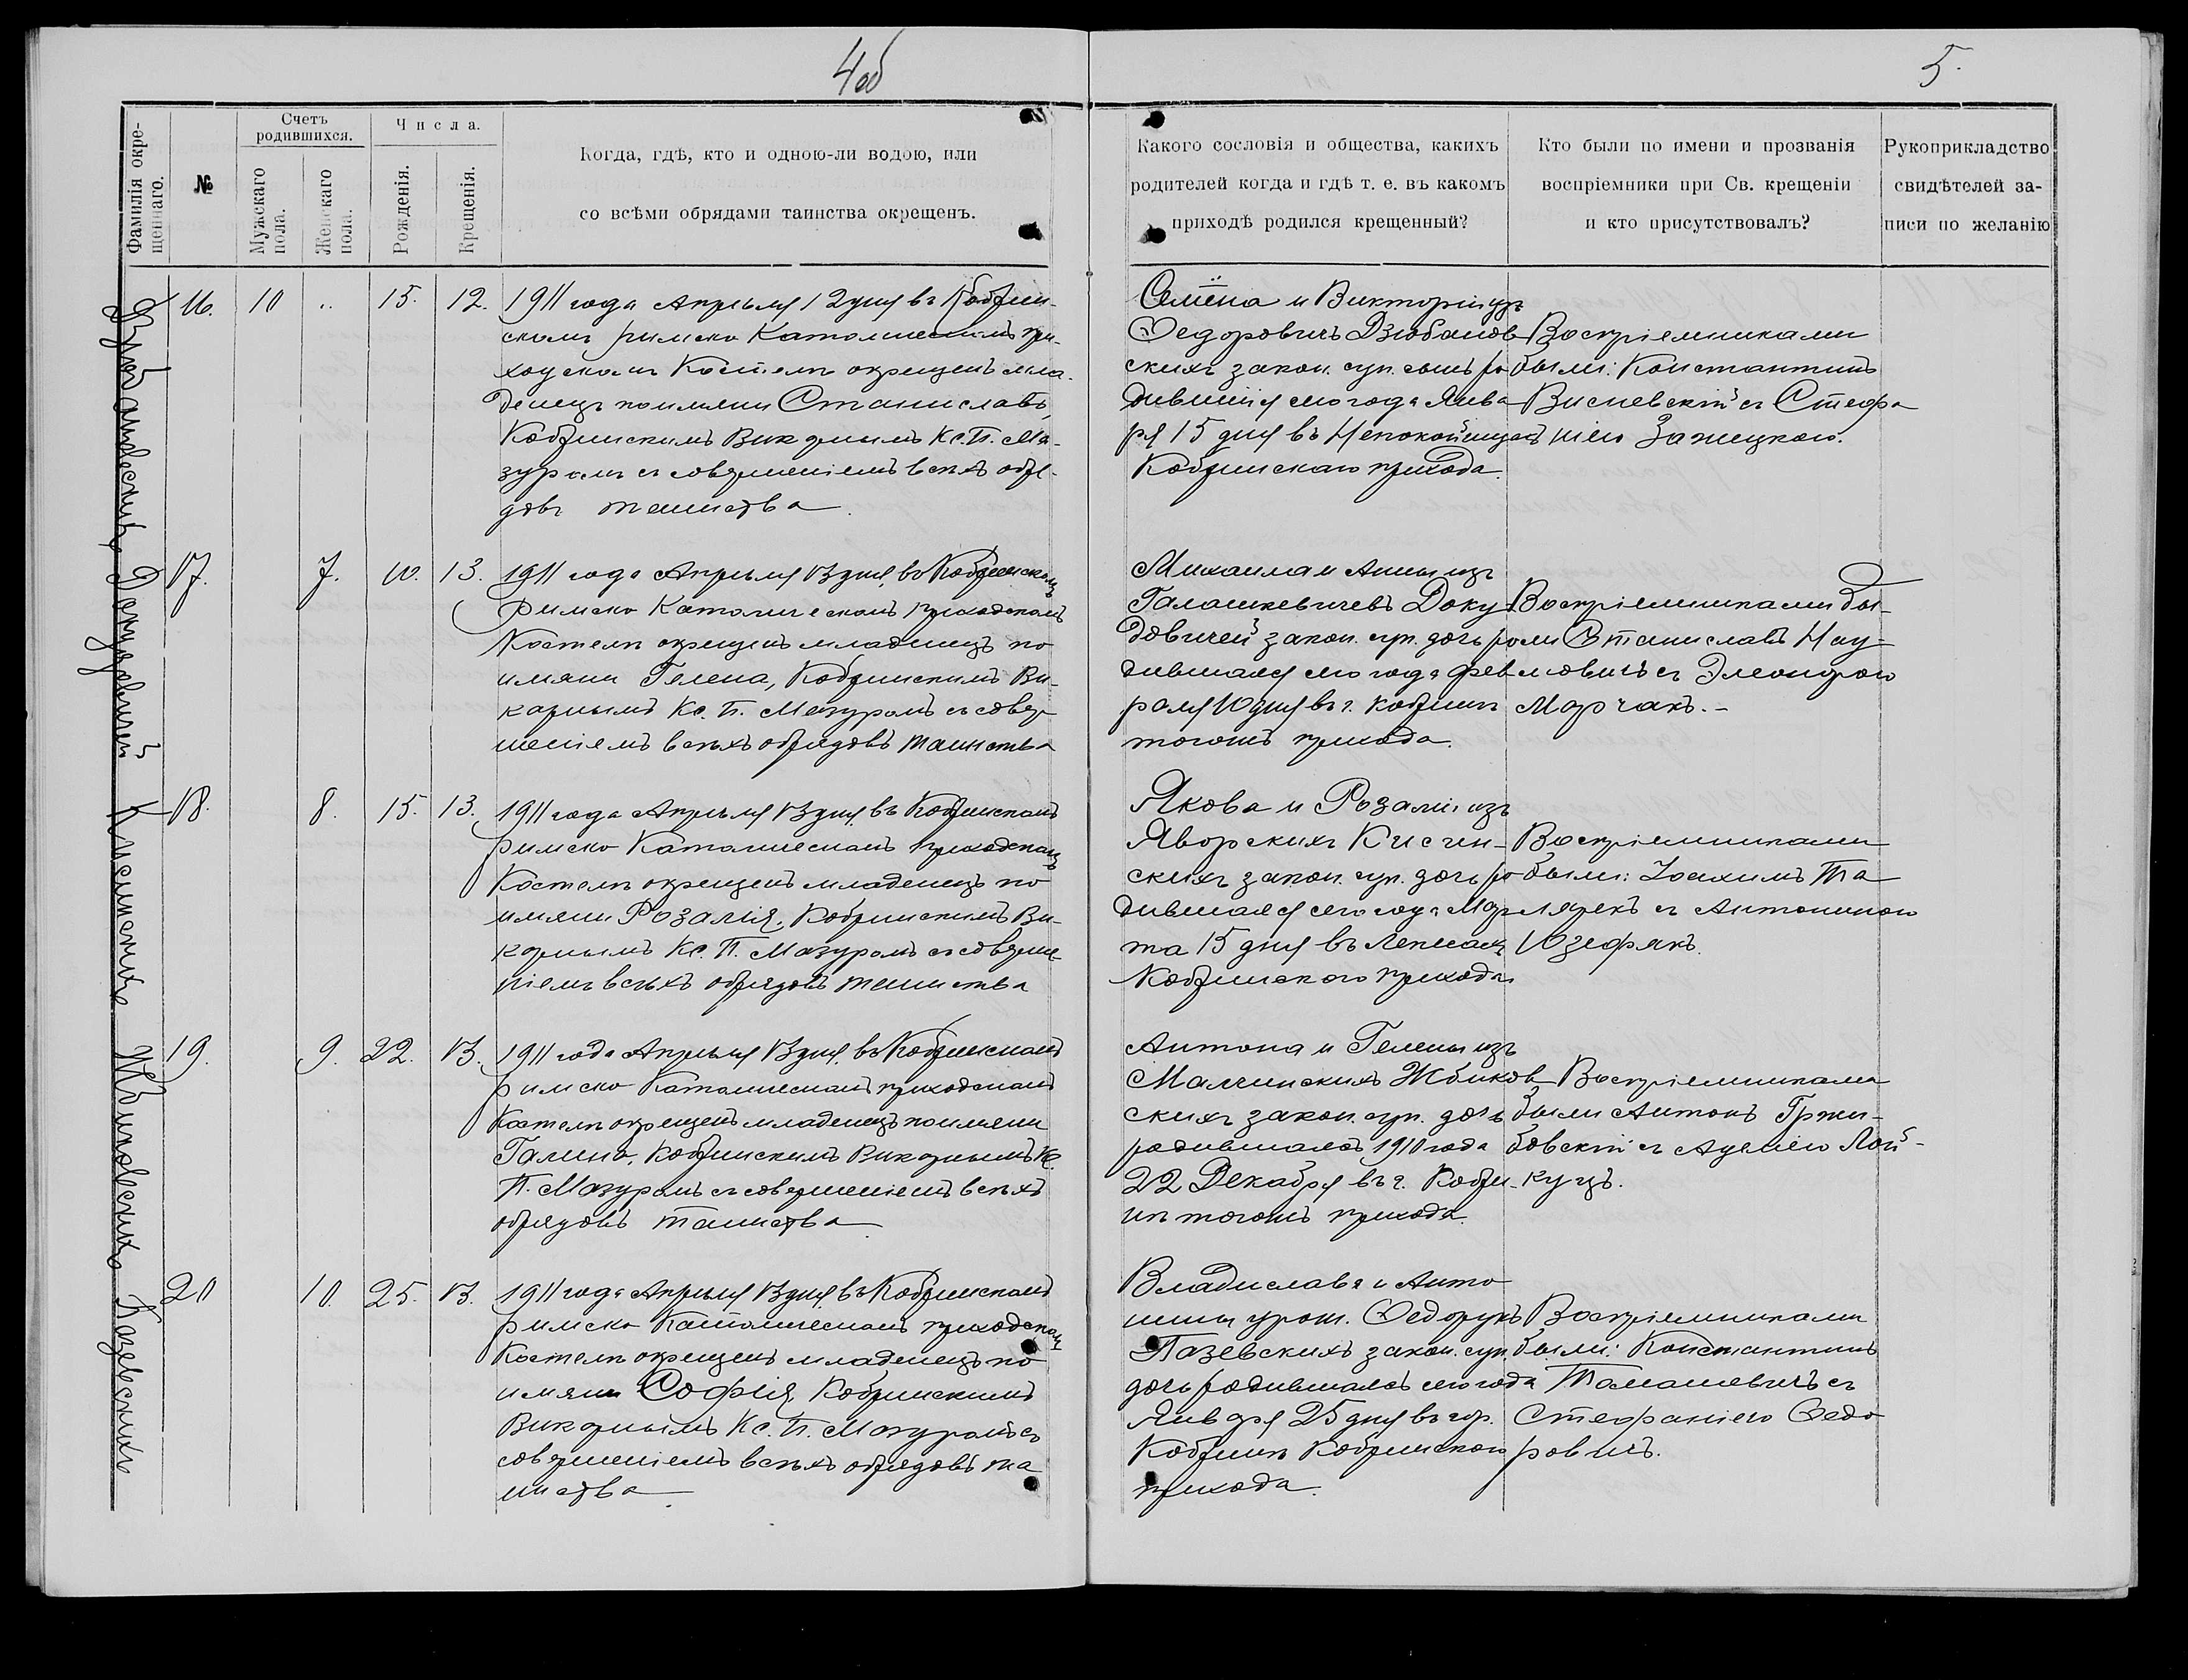 4об
5.
Фамилія окре-
щеннаго.
№
Счетъ
родившихся.
Мужскаго
пола.
Женскаго
пола.
Числа.
Рожденія.
Крещенія.
Когда, гдѣ, кто и одною-ли водою, или
со всѣми обрядами таинства окрещенъ.
Какого сословія и общества, какихъ
родителей когда и гдѣ т. е. въ какомъ
приходѣ родился крещенный?
Кто были по имени и прозванія
воспріемники при Св. крещеніи
и кто присутствовалъ?
Рукоприкладство
свидѣтелей за-
писи по желанію
Дзюбановскихъ
16. 10 .. 15. 12.
1911 года Апрѣля 12 дня въ Кобрин-
скомъ римско Католическомъ при-
ходскомъ Костелѣ окрещенъ мла-
денецъ по имяни Станиславъ,
Кобринскимъ Викарнымъ Кс. П. Ма-
зуромъ съ совершеніемъ всѣхъ обря-
довъ таинства.
Семёна и Викторіи изъ
Федоровичъ Дзюбанов-
скихъ закон. суп. сынъ ро
дившійся сего года Янва
ря 15 дня въ Непокойчицахъ
Кобринскаго прихода.
Воспріемниками
были: Константинъ
Висневскій съ Стефа
ніею Зажецкою.
Докудовичей
17. 7. 10. 13.
1911 года Апрѣля 13 дня, въ Кобринскомъ
Римско Католическомъ приходскомъ
Костелѣ окрещенъ младенецъ по
имяни Гелена, Кобринскимъ Ви-
карнымъ Кс. П. Мазуромъ съ совер
шеніемъ всѣхъ обрядовъ таинства
Михаила и Анны изъ
Галашкевичевъ Доку
довичей закон. суп. дочь ро
дившаяся сего года Фев
раля 10 дня въ г. Кобринѣ
тогожъ прихода.
Воспріемниками бы-
ли Станиславъ Нау-
мовичъ съ Элеонорою
Марчакъ.-
Кисинскихъ
18. 8. 15. 13.
1911 года Апрѣля 13 дня, въ Кобринскомъ
римско Католическомъ приходскомъ
Костелѣ окрещенъ младенецъ по
имяни Розалія, Кобринскимъ Ви-
карнымъ Кс. П. Мазуромъ съ соверше-
ніемъ всѣхъ обрядовъ таинства
Якова и Розаліи изъ
Яворскихъ Кисин-
скихъ закон. суп. дочь ро
дившаяся сего года Мар
та 15 дня въ Лепесахъ
Кобринского прихода
Воспріемниками
были: Іоахимъ Та
лярекъ съ Антониною
Юзефякъ.
Жбиковскихъ
19. 9. 22. 13.
1911 года Апрѣля 13 дня, въ Кобринскомъ
римско Католическомъ приходскомъ
Костелѣ окрещенъ младенецъ по имяни
Галина, Кобринскимъ Викарнымъ Кс.
П. Мазуромъ съ совершеніемъ всѣхъ
обрядовъ таинства
Антона и Гелены изъ
Малчинскихъ Жбиков-
скихъ закон. суп. дочь
родившаяся 1910 года
22 Декабря въ г. Кобри-
нѣ тогожъ прихода.
Воспріемниками
были Антонъ Гржи-
бовскій съ Аделею Лой-
куцъ.
Пазевскихъ
20 10. 25. 13.
1911 года Апрѣля 13 дня, въ Кобринскомъ
римско Католическомъ приходскомъ
Костелѣ окрещенъ младенецъ по
имяни Софія, Кобринскимъ
Викарнымъ Кс. П. Мазуромъ съ
совершеніемъ всѣхъ обрядовъ та
инства
Владислава и Анто
нины урож. Федорукъ
Пазевскихъ закон. суп.
дочь родившаяся сего года
Января 25 дня въ гор.
Кобринѣ Кобринского
прихода.
Воспріемниками
были: Константинъ
Тамашевичъ съ
Стефаніею Федо
ровичъ.